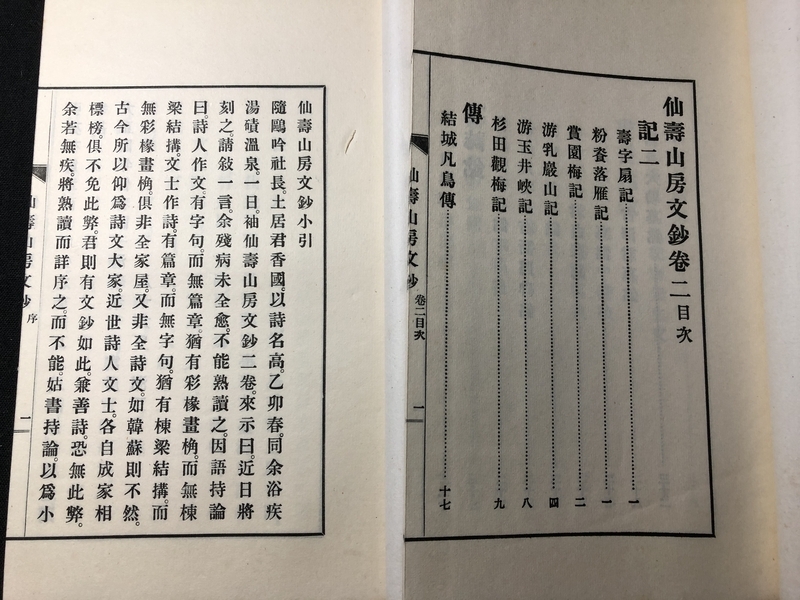 仙壽山房文鈔卷二目次
記二
壽字扇記………一
粉奩落雁記………一
賞園梅記………二
游乳巖山記………四
游玉井峽記………八
杉田觀梅記………九
傳
結城凡鳥傳………十七
仙壽山房文鈔 卷二目次 一
仙壽山房文鈔小引
隨鷗吟社長。土居君香國。以詩名高。乙卯春。同余浴疾
湯磧溫泉。一日。袖仙壽山房文鈔二卷。來示曰。近日將
刻之。請敍一言。余殘病未全愈。不能熟讀之。因語持論
曰。詩人作文。有字句。而無篇章。猶有彩椽畫桷。而無棟
梁結搆。文士作詩。有篇章。而無字句。猶有棟梁結搆。而
無彩椽畫桷。俱非全家屋。又非全詩文。如韓蘇則不然。
古今所以仰爲詩文大家。近世詩人文士。各自成家相
標榜。俱不免此弊。君則有文鈔如此。兼善詩。恐無此弊。
余若無疾。將熟讀而詳序之。而不能。姑書持論。以爲小
仙壽山房文鈔 序 一